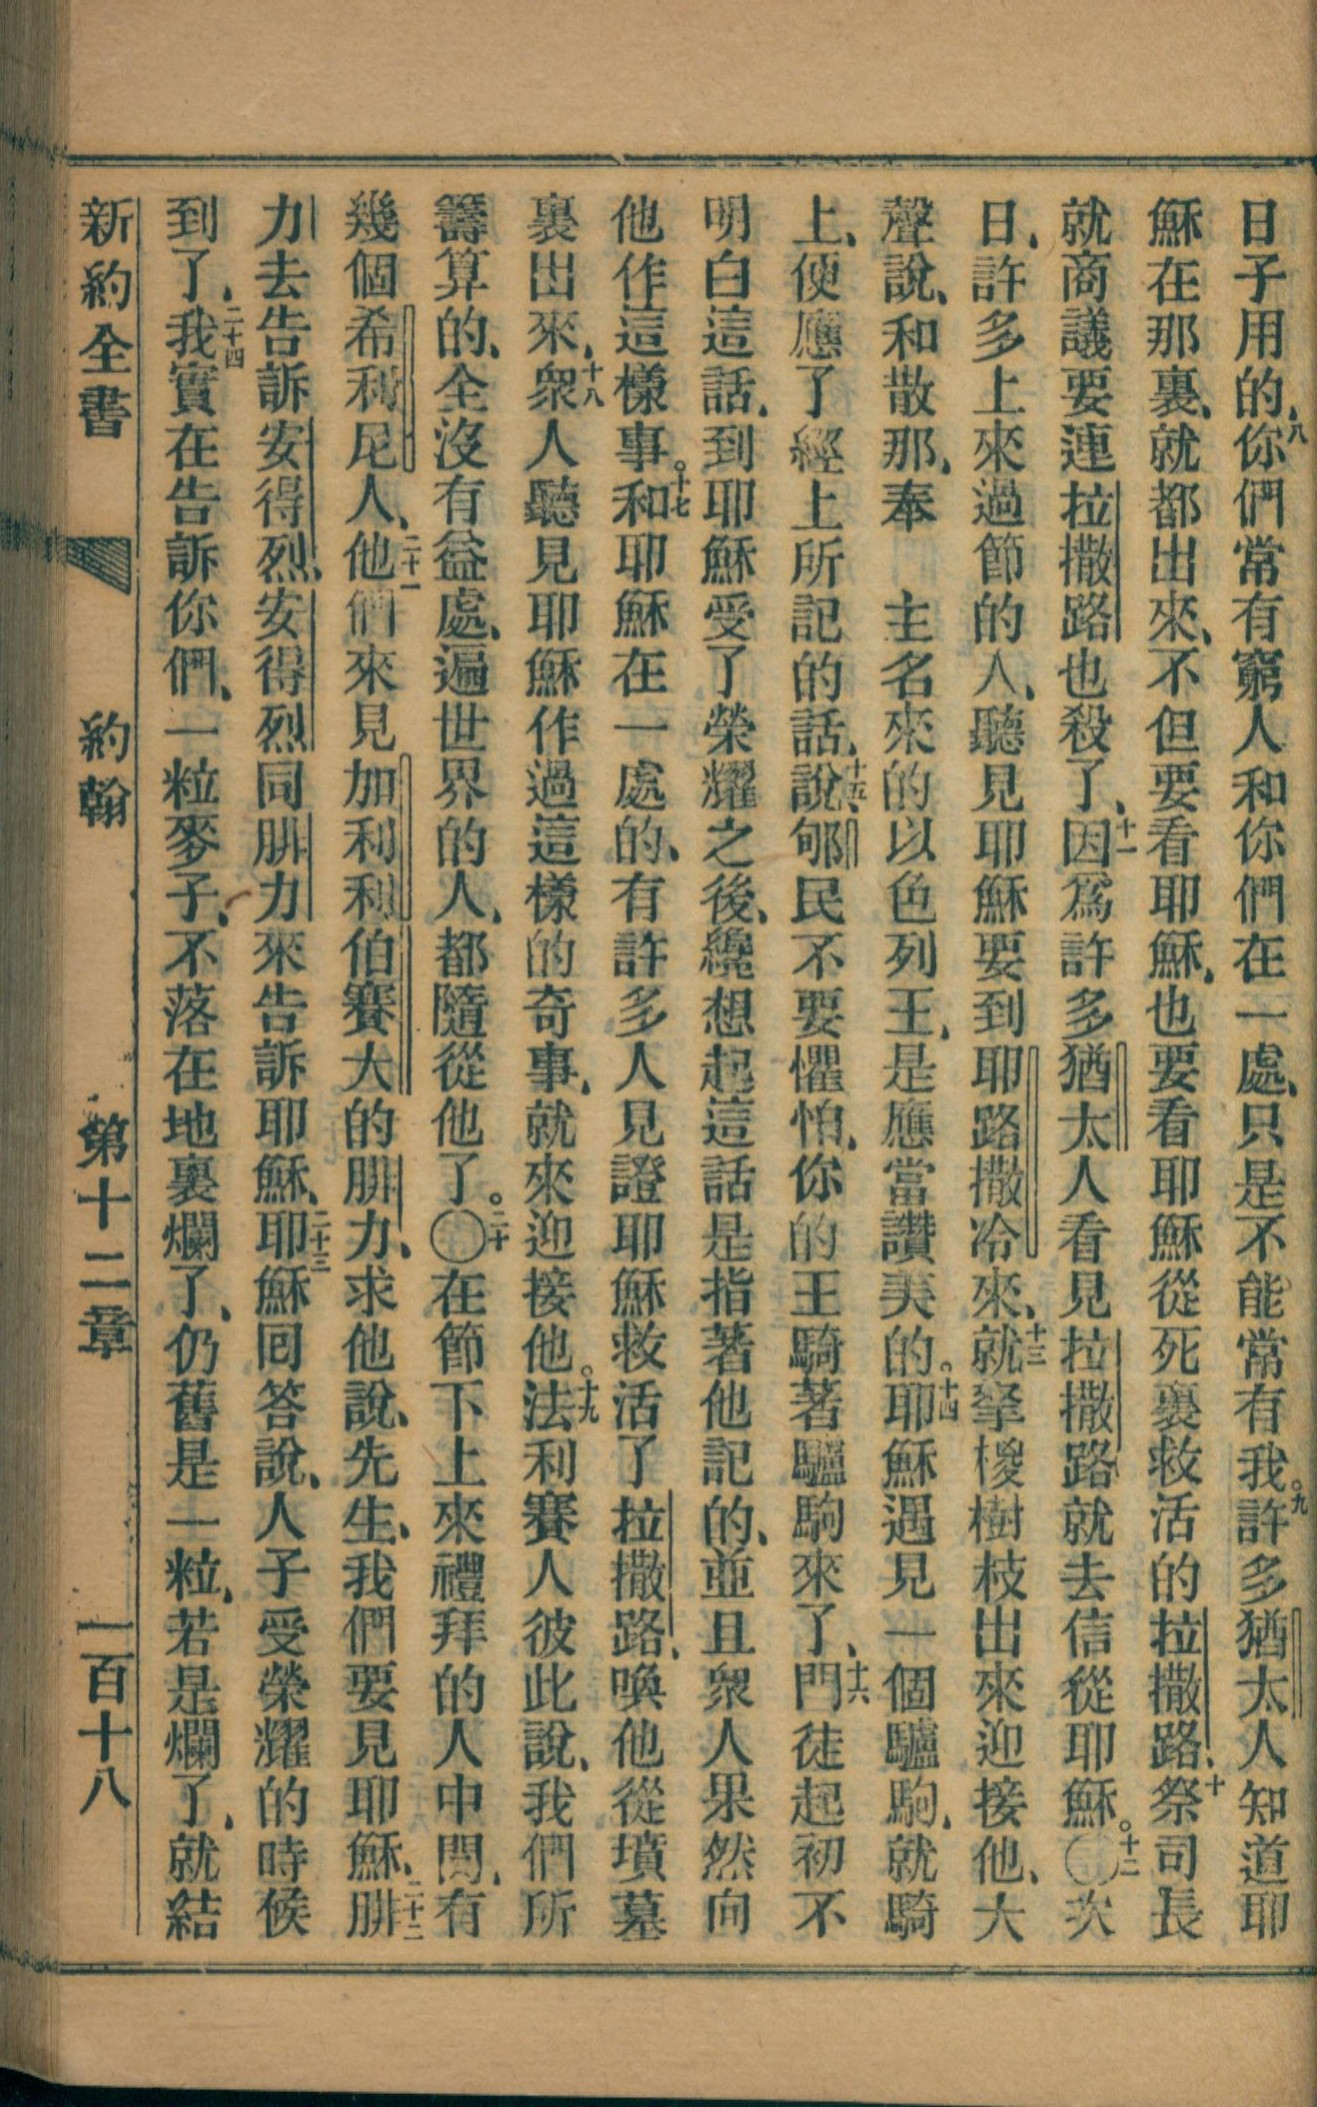 日子用的、八你們常有窮人和你們在一處、只是不能常有我。九許多猶太人知道耶
穌在那裏、就都出來、不但要看耶穌、也要看耶穌從死裏救活的拉撒路、十祭司長
就商議要連拉撒路也殺了、十一因爲許多猶太人看見拉撒路就去信從耶穌。〇十二次
日、許多上來過節的人、聽見耶穌要到耶路撒冷來、十三就拏椶樹枝出來迎接他、大
聲說、和散那、奉　主名來的以色列王、是應當讚美的。十四耶穌遇見一個驢駒、就騎
上、便應了經上所記的話、十五說、郇民不要懼怕、你的王騎著驢駒來了、十六門徒起初不
明白這話、到耶穌受了榮耀之後、纔想起這話是指著他記的、並且衆人果然向
他作這樣事。十七和耶穌在一處的、有許多人見證耶穌救活了拉撒路、喚他從墳墓
裏出來、十八衆人聽見耶穌作過這樣的奇事、就來迎接他。十九法利賽人彼此說、我們所
籌算的、全沒有益處、遍世界的人、都隨從他了。〇二十在節下上來禮拜的人中間、有
幾個希利尼人、二十一他們來見加利利伯賽大的腓力、求他說、先生、我們要見耶穌、二十二腓
力去告訴安得烈、安得烈同腓力來告訴耶穌、二十三耶穌回答說、人子受榮耀的時候
到了、二十四我實在告訴你們、一粒麥子、不落在地裏爛了、仍舊是一粒、若是爛了、就結
新約全書　約翰　第十二章　一百十八